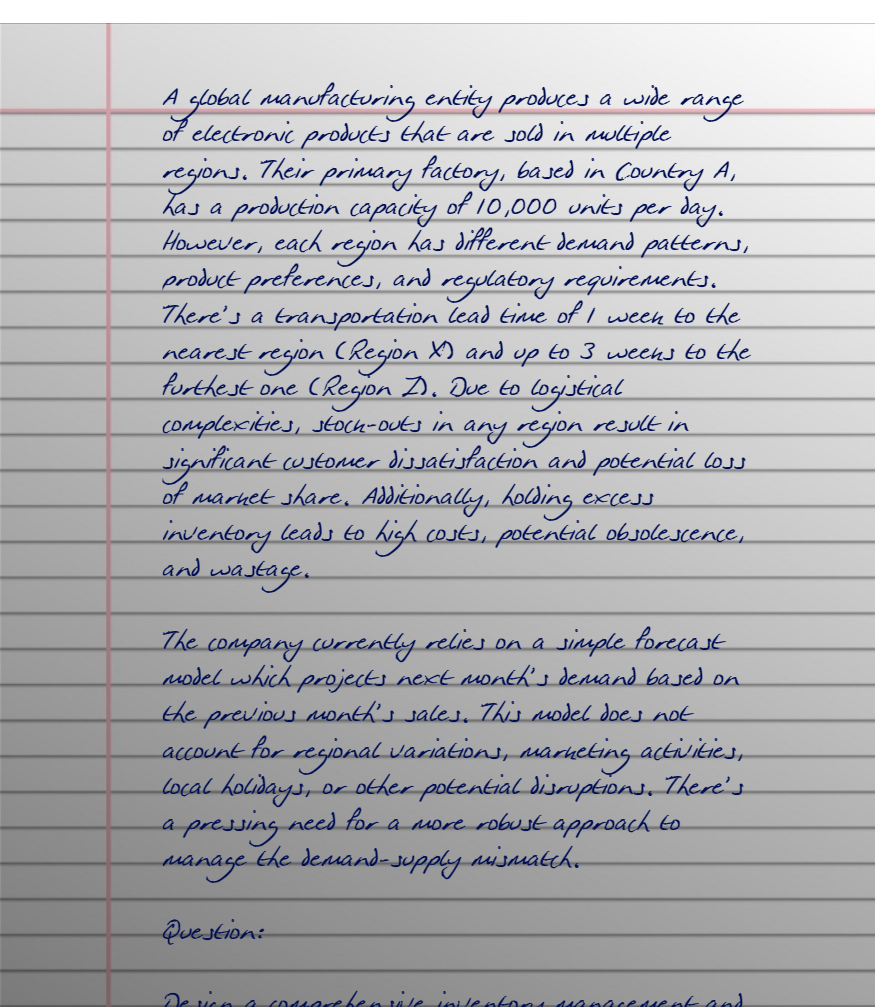 A global manufacturing entity produces a wide range
of electronic products that are sold in multiple
regions. Their primary factory, based in Country A,
has a production capacity of 10,000 units per day.
However, each region has different demand patterns,
product preferences, and regulatory requirements.
There's a transportation lead time of 1 week to the
nearest region (Region X) and up to 3 weeks to the
furthest one (Region Z). Due to logistical
complexities, stock-outs in any region result in
significant customer dissatisfaction and potential loss
of market share. Additionally, holding excess
inventory leads to high costs, potential obsolescence,
and wastage.
The company currently relies on a simple forecast
model which projects next month's demand based on
the previous month's sales. This model does not
account for regional variations, marketing activities,
local holidays, or other potential disruptions. There's
a pressing need for a more robust approach to
manage the demand-supply mismatch.
Question:
Design a comprehensive inventory management and